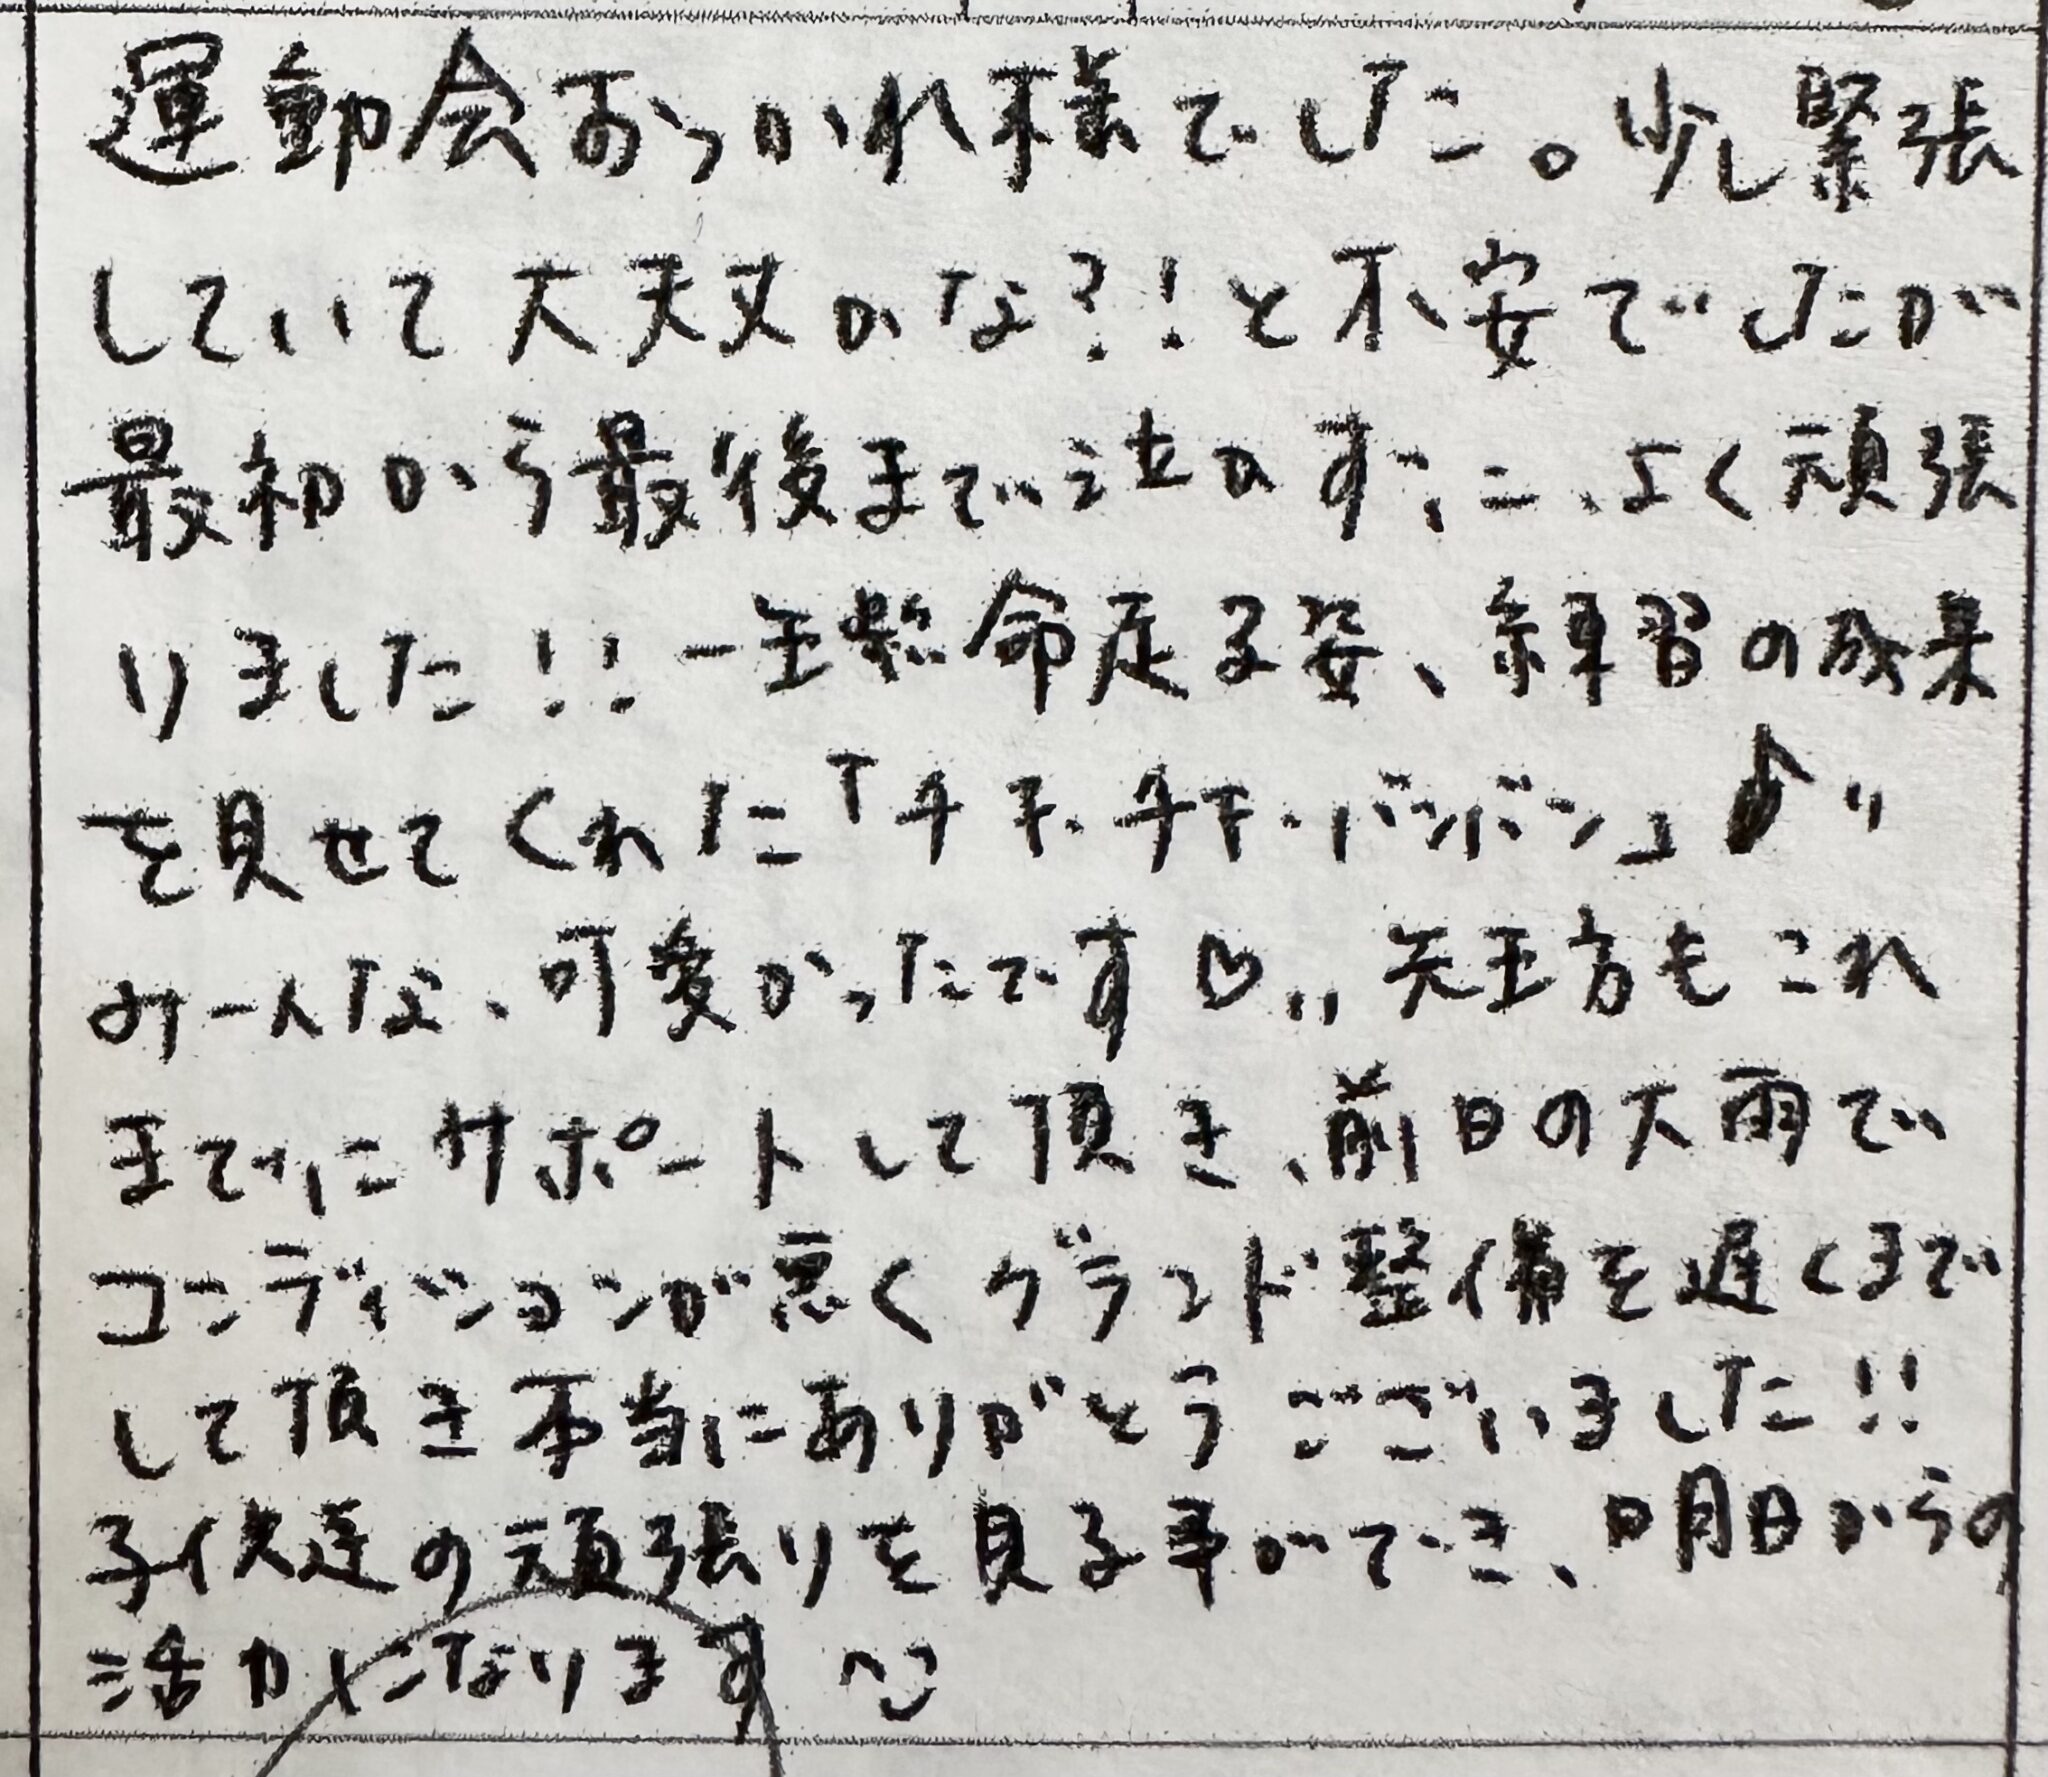 運動会おつかれ様でした。少し緊張
していて大丈夫かな?!と不安でしたが
最初から最後まで泣かずに、よく頑張
りました!!一生懸命走る姿、練習の成果
を見せてくれた「チキ・チキ・バンバン」♪"
みーんな、可愛かったです♡"先生方もこれ
までにサポートして頂き、前日の大雨で
コンディションが悪くグランド整備を遅くまで
して頂き本当にありがとうございました!!
子供達の頑張りを見る事ができ、明日からの
活力になります